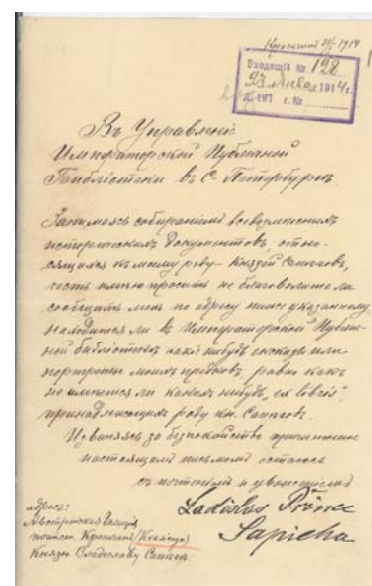 Красичин 1914
Входящій № 198
23 января 1914 г.
г. №
Въ Управленіе
Императорской Публичной
Библіотеки въ С. Петербургѣ
Занимаясь собираніемъ всевозможныхъ
историческихъ документовъ, отно-
сящихся къ моему роду – Князей Сапѣговъ,
честь имѣю просить не благоволите ли
сообщить мнѣ по адресу ниже указанному,
находится ли въ Императорской Публич-
ной библіотекѣ какіе нибудь или
портреты моихъ предковъ равно какъ
не имѣется ли какихъ нибудь „ex libris”,
принадлежащихъ роду кн. Сапѣговъ.
Извиняясь за безпокойство причиненное
настоящимъ письмомъ остаюсь
съ почтеніемъ и уваженіемъ
Ladislas Prince
Sapieha
адресъ:
Австрійская Галиція,
Красичин
Князю Владиславу Сапѣга.